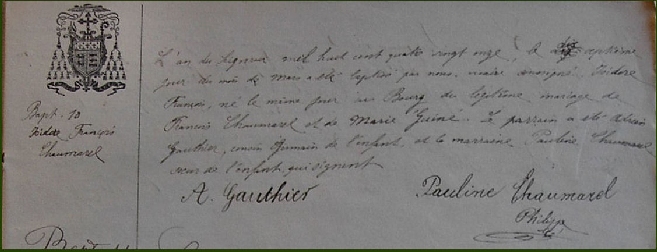 Bapt. 10
Isidore François
Chaumarel
L'an du Seigneur mil huit cent quatre vingt onze, le septième
jour du mois de Mars a été baptisé par nous, vicaire soussigné, Isidore
François, né le même jour au Bourg du légitime mariage de
François Chaumarel et de Marie Guine. Le parrain a été
Gauthier, cousin Germain de l'enfant, et la marraine Pauline Chaumarel
sœur de l'enfant, qui signent
A. Gauthier
Pauline Chaumarel
Philipp